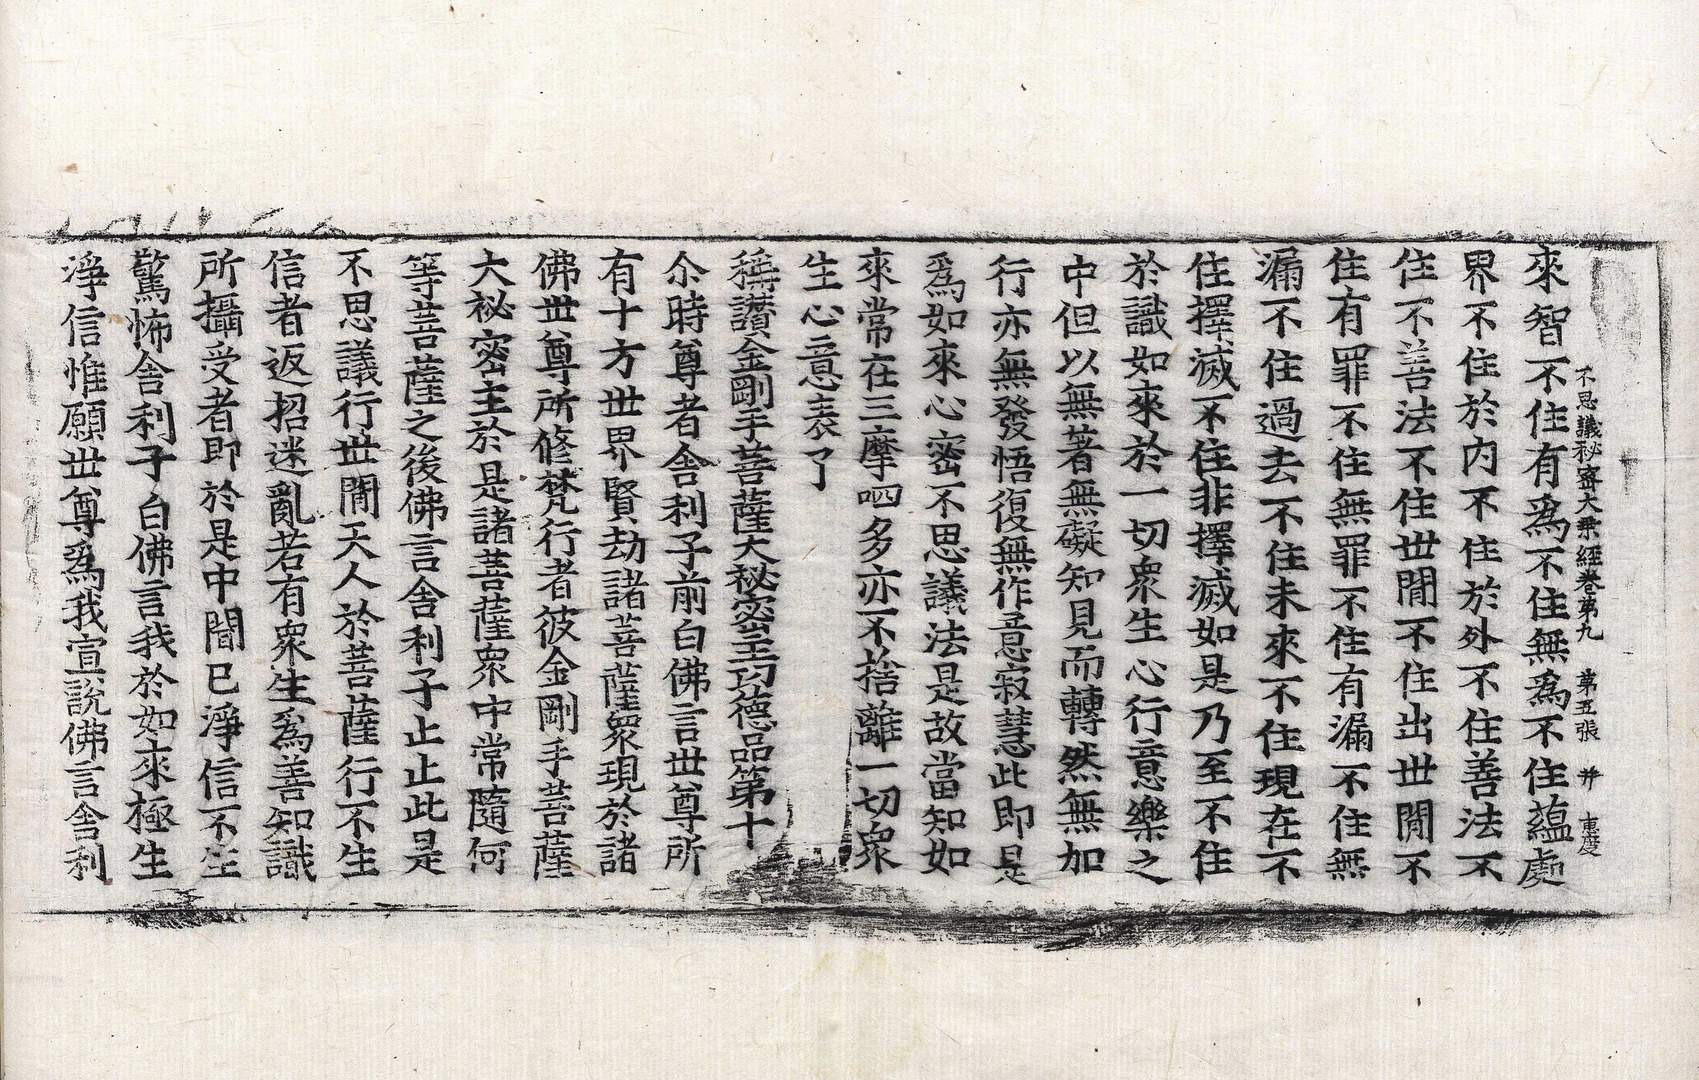 不思議秘密大乗經卷第九 第五張 井 惠度
來智不住有爲不住無爲不住蘊處
界不住於内不住於外不住善法不
住不善法不住世閒不住出世閒不
住有罪不住無罪不住有漏不住無
漏不住過去不住未來不住現在不
住擇滅不住非擇滅如是乃至不住
於識如來於一切衆生心行意樂之
中但以無著無礙知見而轉然無加
行亦無發悟復無作意寂慧此即是
爲如來心密不思議法是故當知如
來常在三摩呬多亦不捨離一切衆
生心意表了
稱讃金剛手菩薩大秘密主功德品第十
尒時尊者舎利子前白佛言世尊所
有十方世界賢劫諸菩薩衆現於諸
佛世尊所修梵行者彼金剛手菩薩
大祕密主於是諸菩薩衆中常隨何
等菩薩之後佛言舎利子止止此是
不思議行世閒天人於菩薩行不生
信者返招迷亂若有衆生爲善知識
所攝受者即於是中閒已淨信不生
驚怖舎利子白佛言我於如來極生
淨信惟願世尊爲我宣說佛言舎利